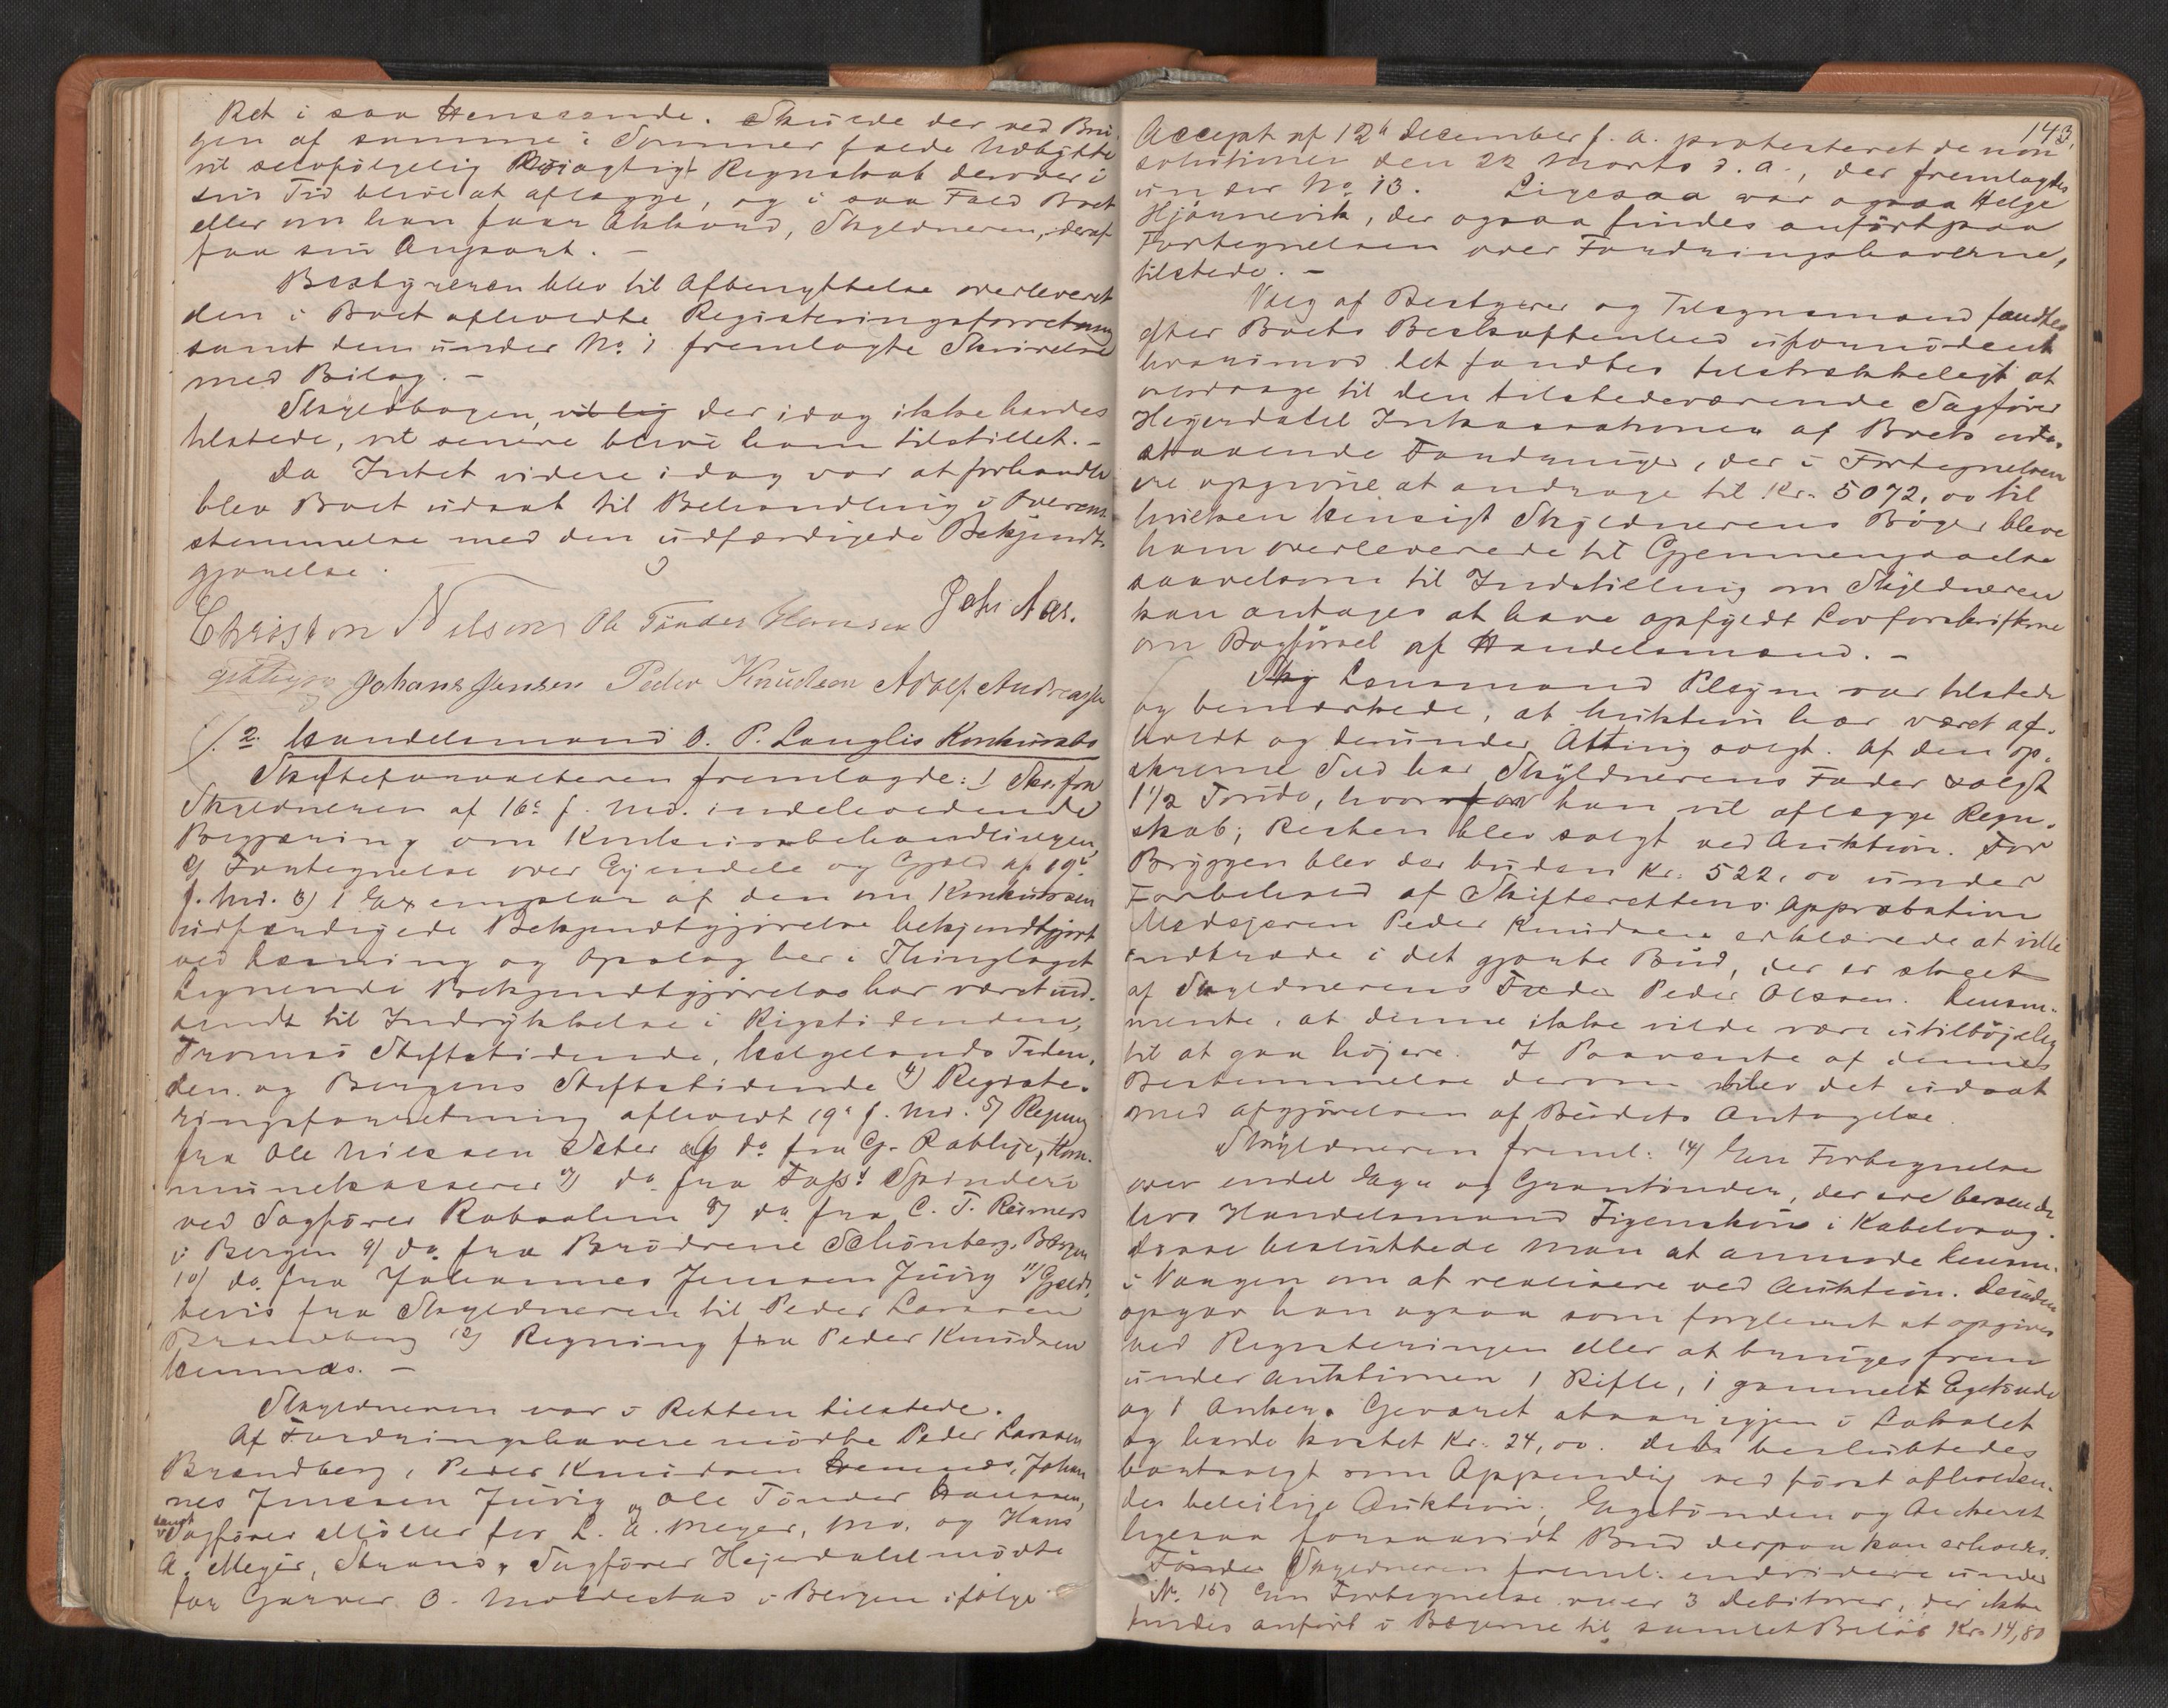 Ret i saa Henseende. Skulde der ved Bru-
gen af samme i Sommer falde Udbytte
vil selvfølgelig Nøiagtigt Regnskab derover i
sin Tid blive at aflægge, og i saa Fald Boet
eller om han faar Akkord, Skyldneren, deraf
faa sin Anpart. –
Bestyreren blev til Afbenyttelse overleveret
den i Boet afholdte Registeringsforretning
samt den under No. 1 fremlagte Skrivelse
med Bilag. –
Skyldbogen, der idag ikke havdes
tilstede, vil senere blive ham tilstillet. –
Da Intet videre idag var at forhandle
blev Boet udsat til Behandling i Overens-
stemmelse med den udfærdigede Bekjendt-
gjørelse.
Christen Nilsen Ole Tønder Hansen Joh. Aas.
Johans Jensen Peder Knudsen Adolf Andreassen
2. Handelsmand O. P. Langlis Konkursbo
Skifteforvalteren fremlagde: 1 Skr. fra
Skyldneren af 16de f. Md. indeholdende
Begjæring om Konkursbehandlingen,
2) Fortegnelse over Eiendele og Gjæld af 19de
f. Md. 3) 1 Exemplar af den om Konkursen
udfærdigede Bekjendtgjørelse bekjendtgjort
ved Læsning og Opslag her i Thinglaget
Lignende Bekjendtgjørelse har været ud-
sendt til Indrykkelse i Rigstidenden,
Tromsø Stiftstidende, Helgelands Tiden-
den og Bergens Stiftstidende 4) Registe-
ringsforretning afholdt 19de f. Md. 5) Regning
fra Ole Nilssen Sæter 6) do. fra G. Rablije, Kom-
munekasserer 7) do fra Foss Spinderi
ved Sagfører Robsahm 8) do. fra C. T. Reimers
i Bergen 9) do. fra Brødrene Schönberg, Bergen
10) do. fra Johannes Jenssen Juvig 11) Gjælds-
bevis fra Skyldneren til Peder Larssen
Brandberg 12) Regning fra Peder Knudsen
Hemnæs. –
Skyldneren var i Retten tilstede.
Af Fordringshavere mødte Peder Larssen
Brandberg, Peder Knudsen Hemnæs, Johan-
nes Jenssen Juvig og Ole Tønder Hanssen,
samt Sagfører Møller for L. A. Meyer, Mo. og Hans
A. Meyer, Strand, Sagfører Hejerdahl mødte
for Garver O. Moldestad i Bergen ifølge
143.
Accept af 12te December f. A. protesteret de non
solutione den 22 Marts d. A., der fremlagdes
under No. 13. Ligesaa var ogsaa Helge
Hjørnevik, der ogsaa findes anført paa
Fortegnelsen over Fordringshaverne,
tilstede. –
Valg af Bestyrer og Tilsynsmand fandtes
efter Boets Beskaffenhed ufornødent
hvorimod det fandtes tilstrækkeligt at
overdrage til den tilstedeværende Sagfører
Hejerdahl Inkassationen af Boets ude-
staaende Fordringer, der i Fortegnelsen
ere opgivne at andrage til Kr. 5072,00 til
hvilken Hensigt Skyldnerens Bøger bleve
ham overleverede til Gjennemgaaelse
saavelsom til Indstilling om Skyldneren
kan antages at have opfyldt Lovforskrifterne
om Bogførsel af Handelsmænd. –
Lensmand Pilgrim var tilstede
og bemærkede, at Auktion har været af-
holdt og derunder Alting solgt. Af den op-
skrevne Sild har Skyldnerens Fader solgt
1 1/2 Tønde, hvorfor han vil aflægge Regn-
skab; Resten blev solgt ved Auktion. For
Bryggen blev der buden Kr. 522,00 under
Forbehold af Skifterettens Approbation
Medejeren Peder Knudsen erklærede at ville
indtræde i det gjorte Bud, der er skeet
af Skyldnerens Fader Peder Olssen. Lensm.
mente, at denne ikke vilde være utilbøjelig
til at gaa højere. I Paavente af dennes
Bestemmelse derom blev det udsat
med Afgjørelsen af Budets Antagelse.
Skyldneren freml: 14) En Fortegnelse
over endel Egn og Grantønder, der ere beroende
hos Handelsmand Figenskou i Kabelvaag.
Disse besluttede man at anmode Lensm.
i Vaagan om at realisere ved Auktion. Desuden
opgav han ogsaa som forglemt at opgives
ved Registeringen eller at bringes frem
under Auktionen 1 Rifle, 1 gammelt Egetønde
og 1 Anker. Geværet staar igjen i Lokalet
og havde kostet Kr. 24,00. Dets besluttedes
bortsolgt som Appendix ved først afholden-
des beleilige Auktion, Egetønden og Ankeret
ligesaa forsaavidt Bud derpaa kan erholdes.
Skyldneren freml. endvidere under
No. 15) En Fortegnelse over 3 Debitorer, der ikke
findes anført i Bøgerne til samlet Beløb Kr. 14,80